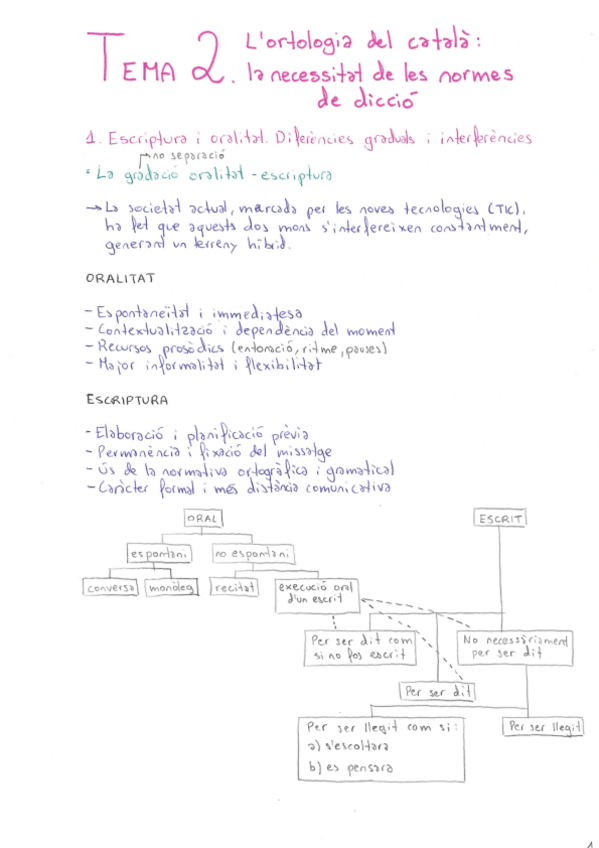 TEMA 2. L'ortologia del català:
la necessitat de les normes
de dicció
1. Escriptura i oralitat. Diferències graduals i interferències
no separació
• La gradació oralitat - escriptura
→ La societat actual, marcada per les noves tecnologies (TIC),
ha fet que aquests dos mons s'interfereixen constantment,
generant un terreny híbrid.
ORALITAT
- Espontaneïtat i immediatesa
- Contextualització i dependència del moment
- Recursos prosòdics (entonació, ritme, pauses)
- Major informalitat i flexibilitat
ESCRIPTURA
- Elaboració i planificació prèvia
- Permanència i fixació del missatge
- Ús de la normativa ortogràfica i gramatical
- Caràcter formal i més distància comunicativa
ORAL
ESCRIT
espontani
no espontani
conversa
monòleg
recitat
execució oral
d'un escrit
Per ser dit com
si no fos escrit
No necessàriament
per ser dit
Per ser dit
Per ser llegit com si:
a) s'escoltara
b) es pensara
Per ser llegit
1